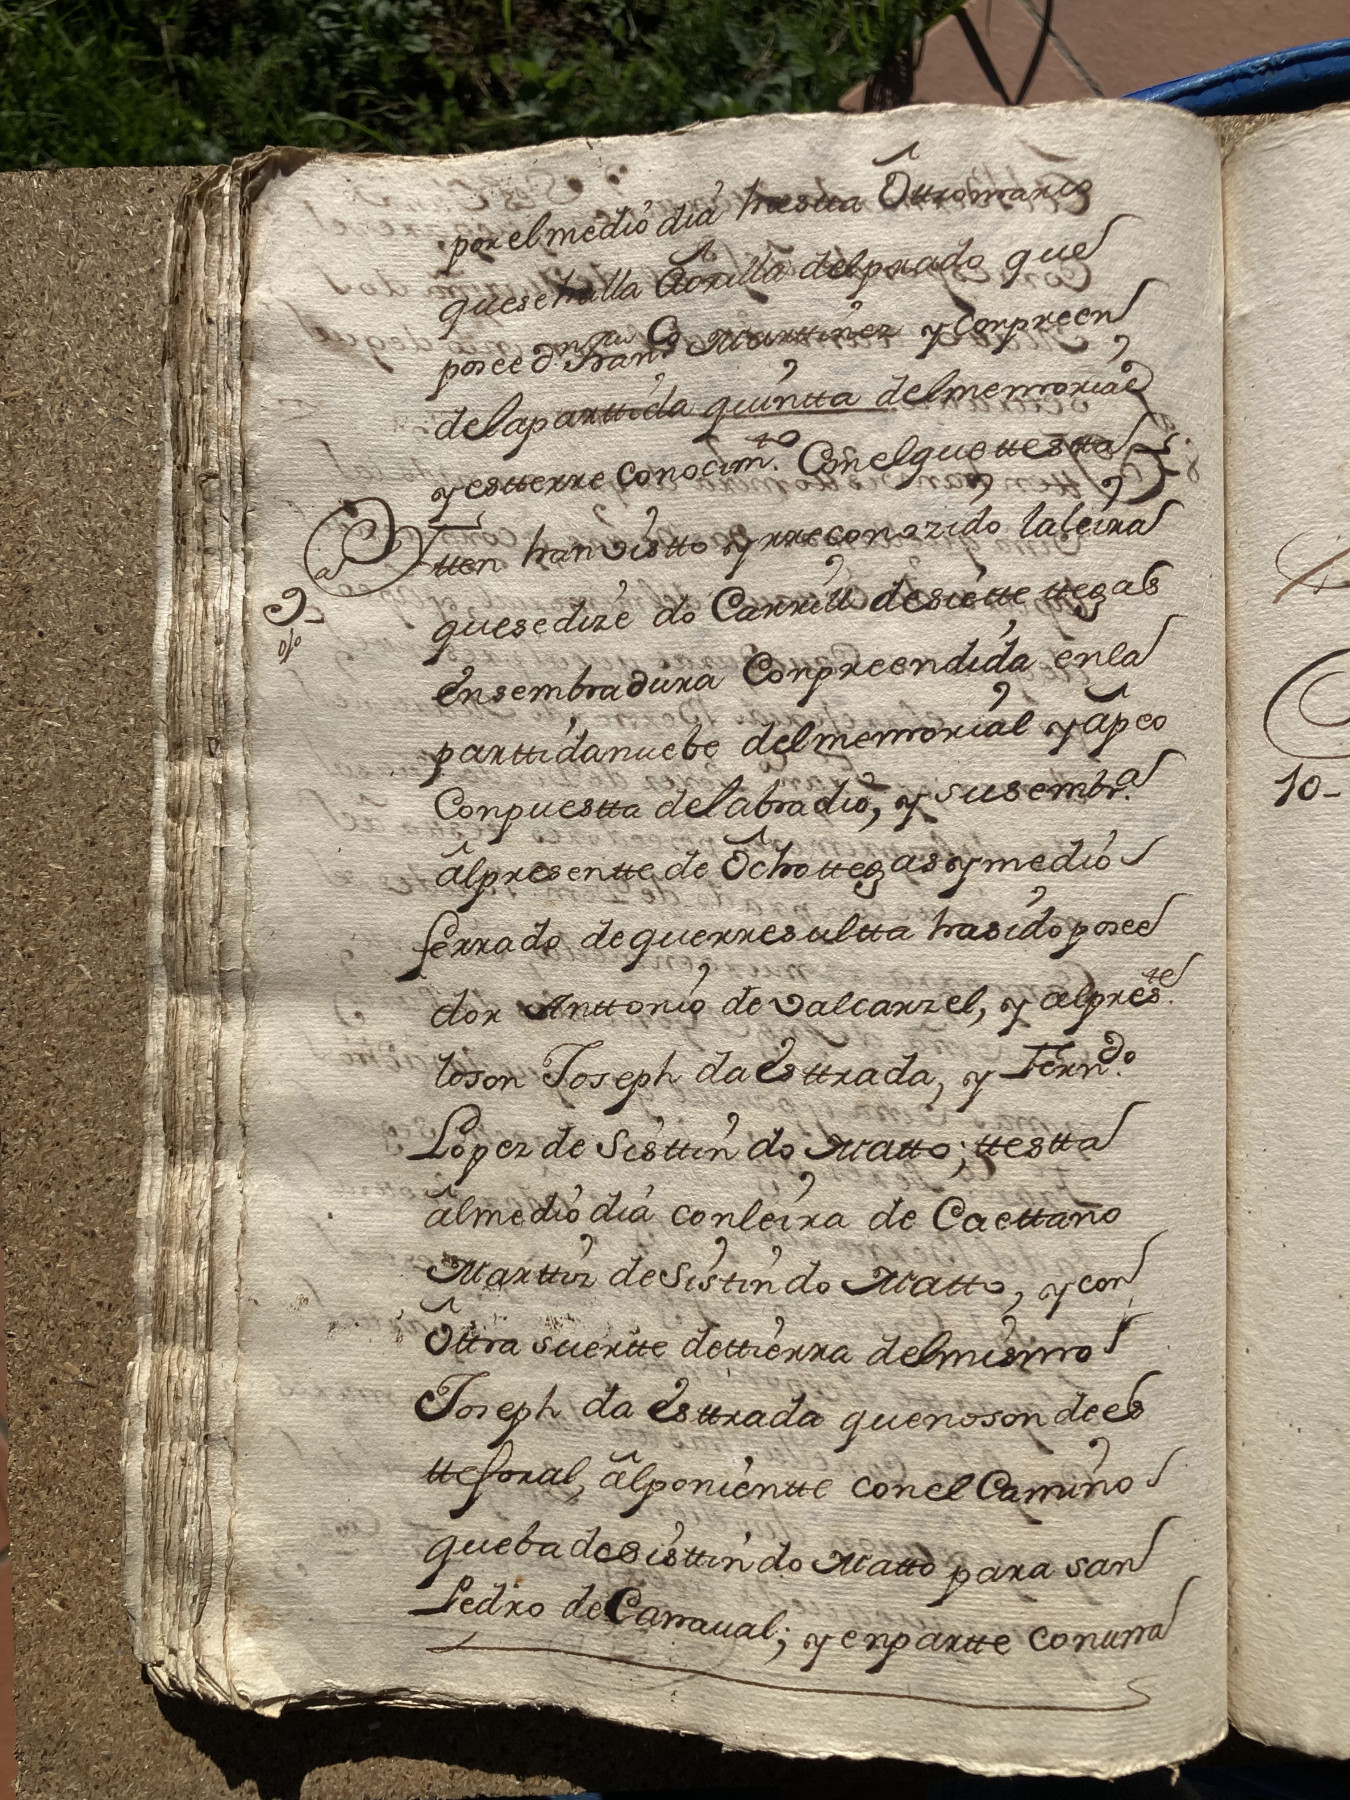 por el medio dia hastta ôttro marco
que se halla âorilla del prado que
posee Dn. Franco. Marttinez y Conpreen
de la parttida quintta del memorial
y estterre conocimto. Con el que testta
9
a
Itten han visto y rreconozido la leira
que se dize do Carril de siette ttegas
ensembradura Conpreendida en la
parttida nuebe del memorial y âpeo
Conpuestta de labradio, y su sembra.
âl presentte de ôcho ttegas y medio
ferrado de que rresultta ha sido posee
dor Anttonio de Valcarzel, y al preste.
lo son Joseph da Esttrada, y Ferndo.
Lopez de Sisttin do Matto; ttestta
âl medio dia con leira de Caettano
Marttiz de Sistin do Matto, y con
ôttra suertte de ttierra del mismo
Joseph da Esttrada que no son de es
tte foral, âl ponientte con el Camino
que ba de Sisttin do Matto para san
Pedro de Carraual; y en partte con una
10-